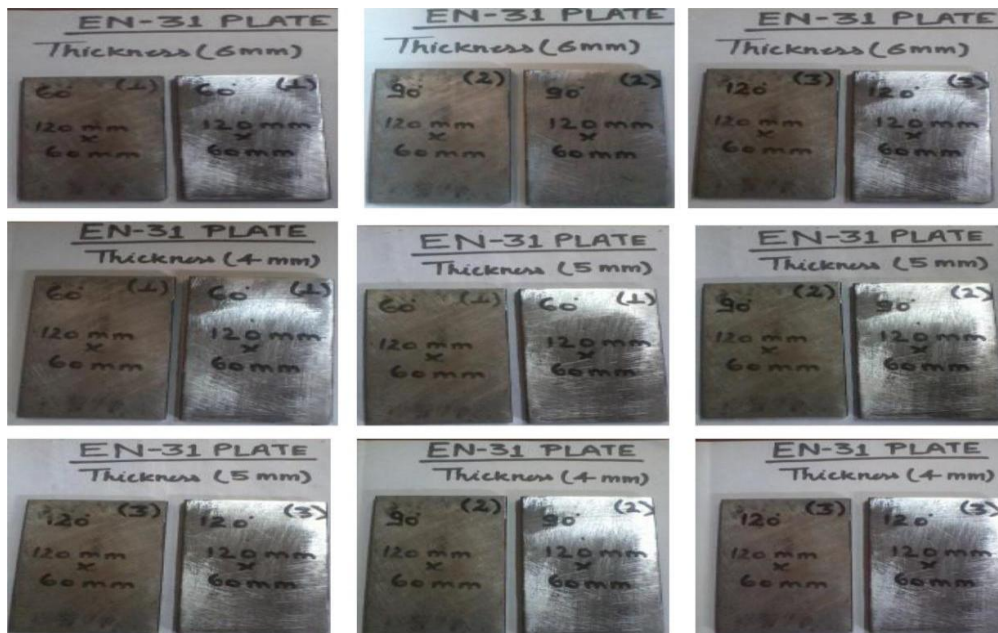 EN-31 PLATE
Thickness (6mm)
60° (1)
120 mm
×
60 mm
60° (1)
120 mm
×
60 mm
EN-31 PLATE
Thickness (6mm)
90° (2)
120 mm
×
60 mm
90° (2)
120 mm
×
60 mm
EN-31 PLATE
Thickness (6mm)
120° (3)
120 mm
×
60 mm
120° (3)
120 mm
×
60 mm
EN-31 PLATE
Thickness (4 mm)
60° (1)
120 mm
×
60 mm
60° (1)
120 mm
×
60 mm
EN-31 PLATE
Thickness (5 mm)
60° (1)
120 mm
×
60 mm
60° (1)
120 mm
×
60 mm
EN-31 PLATE
Thickness (5 mm)
90° (2)
120 mm
×
60 mm
90° (2)
120 mm
×
60 mm
EN-31 PLATE
Thickness (5 mm)
120° (3)
120 mm
×
60 mm
120° (3)
120 mm
×
60 mm
EN-31 PLATE
Thickness (4 mm)
90° (2)
120 mm
×
60 mm
90° (2)
120 mm
×
60 mm
EN-31 PLATE
Thickness (4 mm)
120° (3)
120 mm
×
60 mm
120° (3)
120 mm
×
60 mm